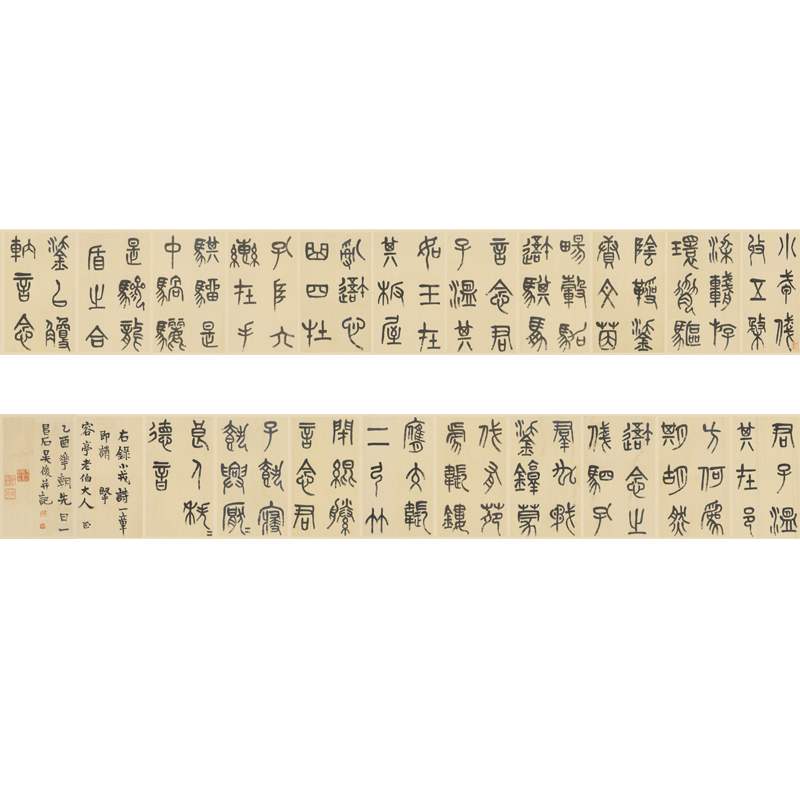 小戎俴
收五楘
梁輈游
環脅驅
陰靷鋈
續文茵
暢轂駕
我騏馵
言念君
子溫其
如玉在
其板屋
亂我心
曲四牡
孔阜六
轡在手
騏駵是
中騧驪
是驂龍
盾之合
鋈以觼
軜言念
君子溫
其在邑
方何為
期胡然
我念之
俴駟孔
羣厹
鋈錞蒙
伐有苑
虎韔鏤
膺交韔
二弓竹
閉緄縢
言念君
子載寢
載興厭〻
良人秩〻
德音
右錄小戎詩一章
即請
容亭老伯大人
乙酉華朝先日一
昌石吳俊并記